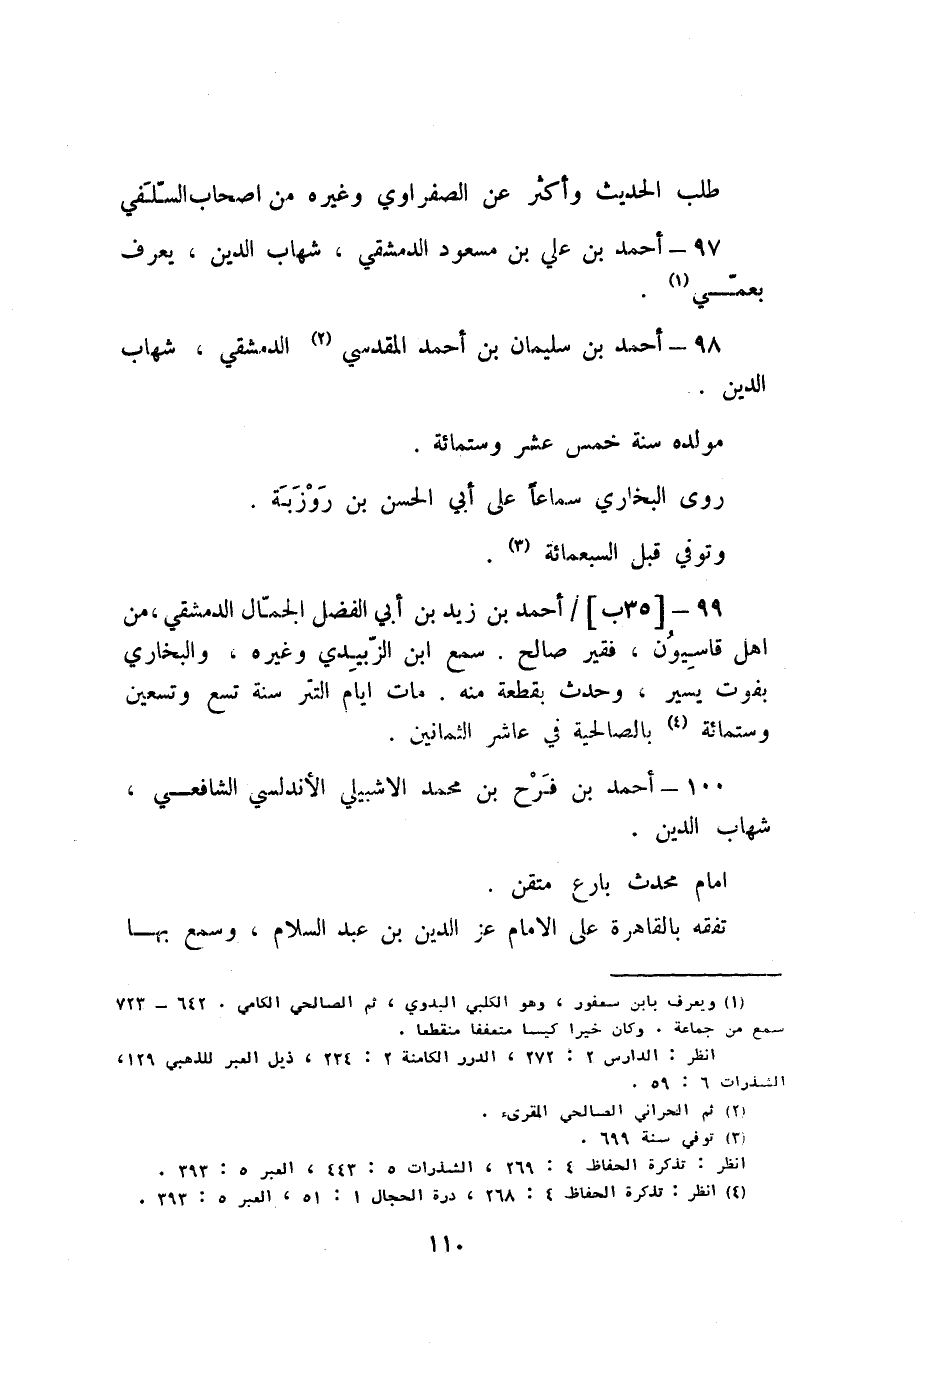 طلب الحديث وأكثر عن الصفراوي وغيره من اصحاب السّلَفي
٩٧ – أحمد بن علي بن مسعود الدمشقي ، شهاب الدين ، يعرف
بعمّي (١) .
٩٨ – أحمد بن سليمان بن أحمد المقدسي (٢) الدمشقي ، شهاب
الدين .
مولده سنة خمس عشر وستمائة .
روى البخاري سماعاً على أبي الحسن بن رَوْزَبَة .
وتوفي قبل السبعمائة (٣) .
٩٩ – [٣٥ب] / أحمد بن زيد بن أبي الفضل الجمّال الدمشقي ، من
اهل قاسيوُن ، فقير صالح . سمع ابن الزّبيدي وغيره ، والبخاري
بفوت يسير ، وحدث بقطعة منه . مات ايام التتر سنة تسع وتسعين
وستمائة (٤) بالصالحية في عاشر الثمانين .
١٠٠ – أحمد بن فَرْح بن محمد الاشبيلي الأندلسي الشافعي ،
شهاب الدين .
امام محدث بارع متقن .
تفقه بالقاهرة على الامام عز الدين بن عبد السلام ، وسمع بها
(١) ويعرف بابن سعفور ، وهو الكلبي البدوي ، ثم الصالحي الكامي . ٦٤٢ – ٧٢٣
سمع من جماعة . وكان خيرا كيسا متعففا منقطعا .
انظر : الدارس ٢ : ٢٧٢ ، الدرر الكامنة ٢ : ٢٢٤ ، ذيل العبر للذهبي ١٢٩،
الشذرات ٦ : ٥٩ .
(٢) ثم الحراني الصالحي المقرىء .
(٣) توفي سنة ٦٩٩ .
انظر : تذكرة الحفاظ ٤ : ٢٦٩ ، الشذرات ٥ : ٤٤٣ ، العبر ٥ : ٣٩٣ .
(٤) انظر : تذكرة الحفاظ ٤ : ٢٦٨ ، درة الحجال ١ : ٥١ ، العبر ٥ : ٣٩٣ .
١١٠